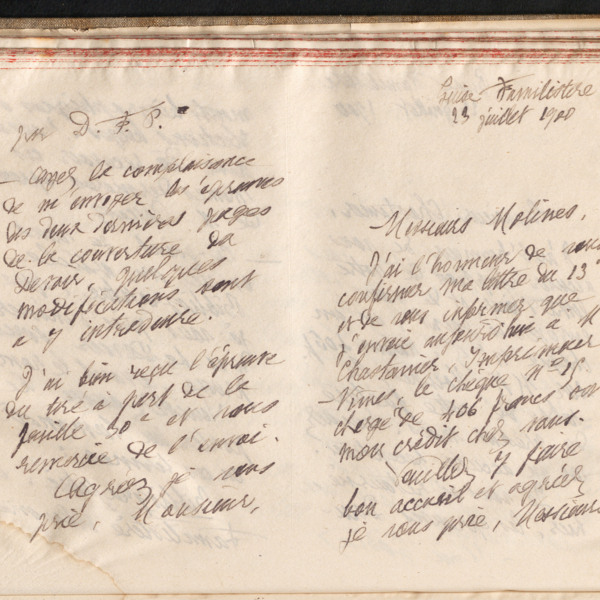 par D. F. P.
Ayez la complaisance
de m'envoyer les épreuves
des deux dernières pages
de la couverture du
Devoir, quelques
modifications sont
à y introduire.
J'ai bien reçu l'épreuve
du tiré à part de la
feuille 30e et vous
remercie de l'envoi.
Agréez, je vous
prie, Monsieur,
Guise Familistère
23 juillet 1900
Messieurs Molines,
J'ai l'honneur de vous
confirmer ma lettre du 13
et de vous informer que
j'envoie aujourd'hui à M
Chastanier, Imprimeur
Nîmes, le chèque n°
chargé de 406 francs
mon crédit chez vous.
Veuillez y faire
bon accueil et agréer
je vous prie, Messieurs